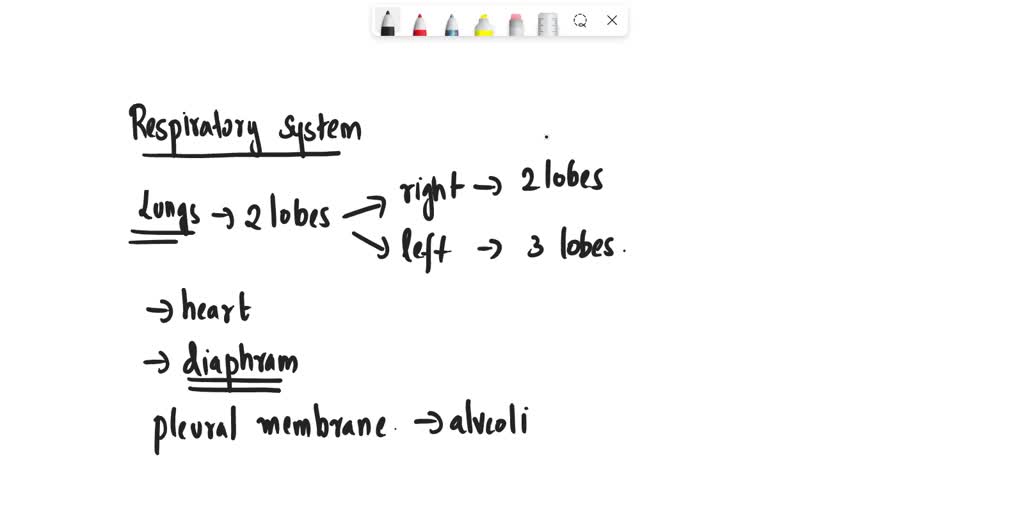 Respiratory system
Lungs → 2 lobes
right → 2 lobes
left → 3 lobes.
→ heart
→ diaphram
pleural membrane. → alveoli